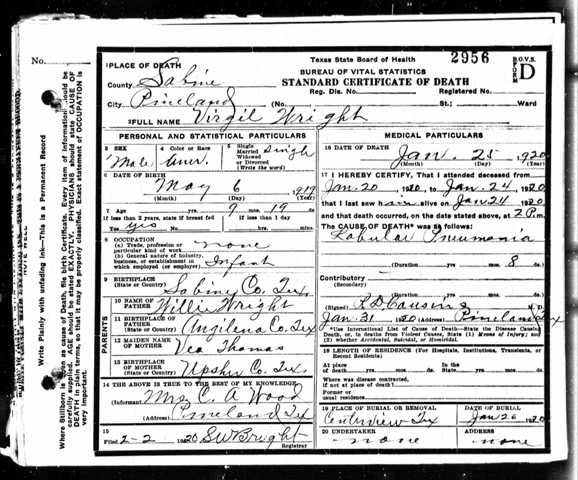 No.
Texas State Board of Health
2956
B.O.V.S.
FORM
D
1 PLACE OF DEATH
BUREAU OF VITAL STATISTICS
County Sabine
STANDARD CERTIFICATE OF DEATH
Reg. Dis. No. Registered No.
City Pineland (No. St.; Ward
2 FULL NAME Virgil Wright
PERSONAL AND STATISTICAL PARTICULARS
3 SEX Male
4 Color or Race Amer.
5 Single Married Widowed or Divorced (Write the word) Single
6 DATE OF BIRTH
May 6 1919
(Month) (Day) (Year)
7 Age yrs. 7 mos. 19 ds.
If less than 2 years, state if breast fed If less than 1 day
Yes yes hrs. min.
8 OCCUPATION
(a) Trade, profession or particular kind of work none
(b) General nature of industry, business, or establishment in which employed (or employer) Infant
9 BIRTHPLACE
(State or Country) Sabine Co. Tex.
PARENTS
10 NAME OF FATHER Willie Wright
11 BIRTHPLACE OF FATHER
(State or Country) Angilena Co. Tex
12 MAIDEN NAME OF MOTHER Vea Thomas
13 BIRTHPLACE OF MOTHER
(State or Country) Upshur Co. Tex.
14 THE ABOVE IS TRUE TO THE BEST OF MY KNOWLEDGE
(Informant) Mrs C. A Wood
(Address) Pineland Tex
15
Filed 2-2 1920 S W Bright
Registrar
MEDICAL PARTICULARS
16 DATE OF DEATH
Jan. 25 1920
(Month) (Day) (Year)
17 I HEREBY CERTIFY, That I attended deceased from
Jan. 20 1920 to Jan. 24 1920
that I last saw him alive on Jan 24 1920
and that death occurred, on the date stated above, at 2 P.m.
The CAUSE OF DEATH* was as follows:
Lobular Pneumonia
(Duration yrs. mos. 8 ds.
Contributory
(Secondary)
(Duration yrs. mos. ds.
(Signed) M. D.
Jan. 31 1920 (Address) Pineland Tex
*Use International List of Cause of Death—State the Disease Causing Death, or, in deaths from Violent Causes, State (1) Means of Injury; and (2) whether Accidental, Suicidal, or Homicidal.
18 LENGTH OF RESIDENCE (For Hospitals, Institutions, Transients, or Recent Residents)
At place of death yrs. mos. ds. In the State yrs. mos. ds.
Where was disease contracted, if not at place of death?
Former or usual residence
19 PLACE OF BURIAL OR REMOVAL DATE OF BURIAL
Centerview Tex Jan 26 1920
20 UNDERTAKER ADDRESS
none none
Write Plainly with unfading ink—This is a Permanent Record